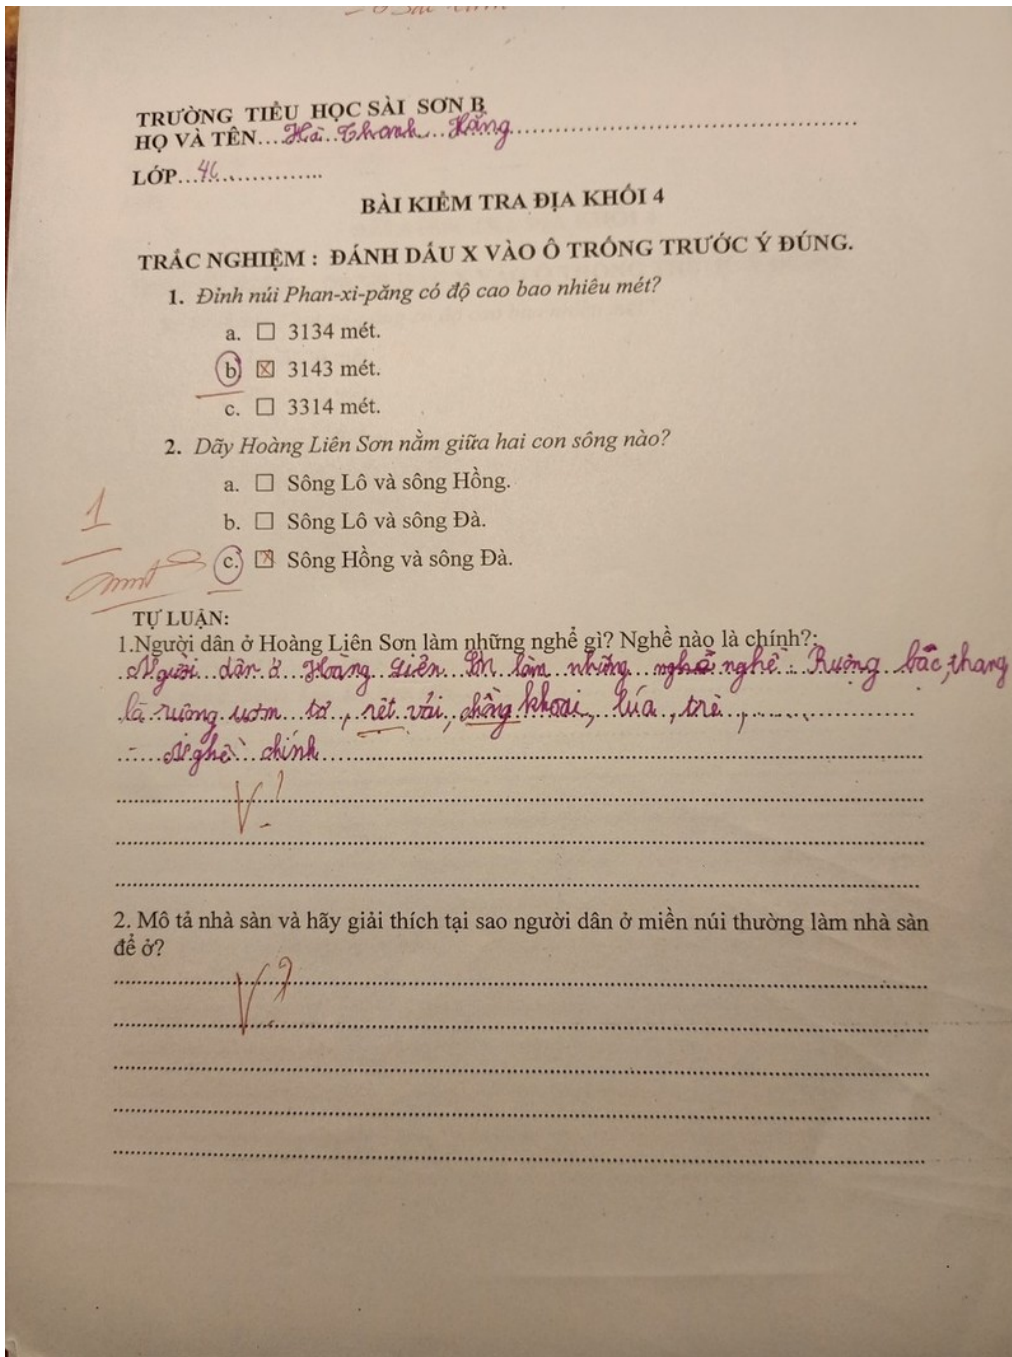 TRƯỜNG TIỂU HỌC SÀI SƠN B
HỌ VÀ TÊN...Hà..Thanh..Hằng
LỚP...4C
BÀI KIỂM TRA ĐỊA KHỐI 4
TRẮC NGHIỆM : ĐÁNH DẤU X VÀO Ô TRỐNG TRƯỚC Ý ĐÚNG.
1. Đỉnh núi Phan-xi-păng có độ cao bao nhiêu mét?
a. ☐ 3134 mét.
b ☒ 3143 mét.
c. ☐ 3314 mét.
2. Dãy Hoàng Liên Sơn nằm giữa hai con sông nào?
a. ☐ Sông Lô và sông Hồng.
b. ☐ Sông Lô và sông Đà.
c. ☒ Sông Hồng và sông Đà.
1
TỰ LUẬN:
1.Người dân ở Hoàng Liên Sơn làm những nghề gì? Nghề nào là chính?:
Người dân ở Hoàng Liên Sơn làm những nghề : Ruộng bắc, thang
là ruộng ươm tơ, rệt vải, chồng khoai, lúa, trè,
- Nghề chính
V?
2. Mô tả nhà sàn và hãy giải thích tại sao người dân ở miền núi thường làm nhà sàn
để ở?
V?